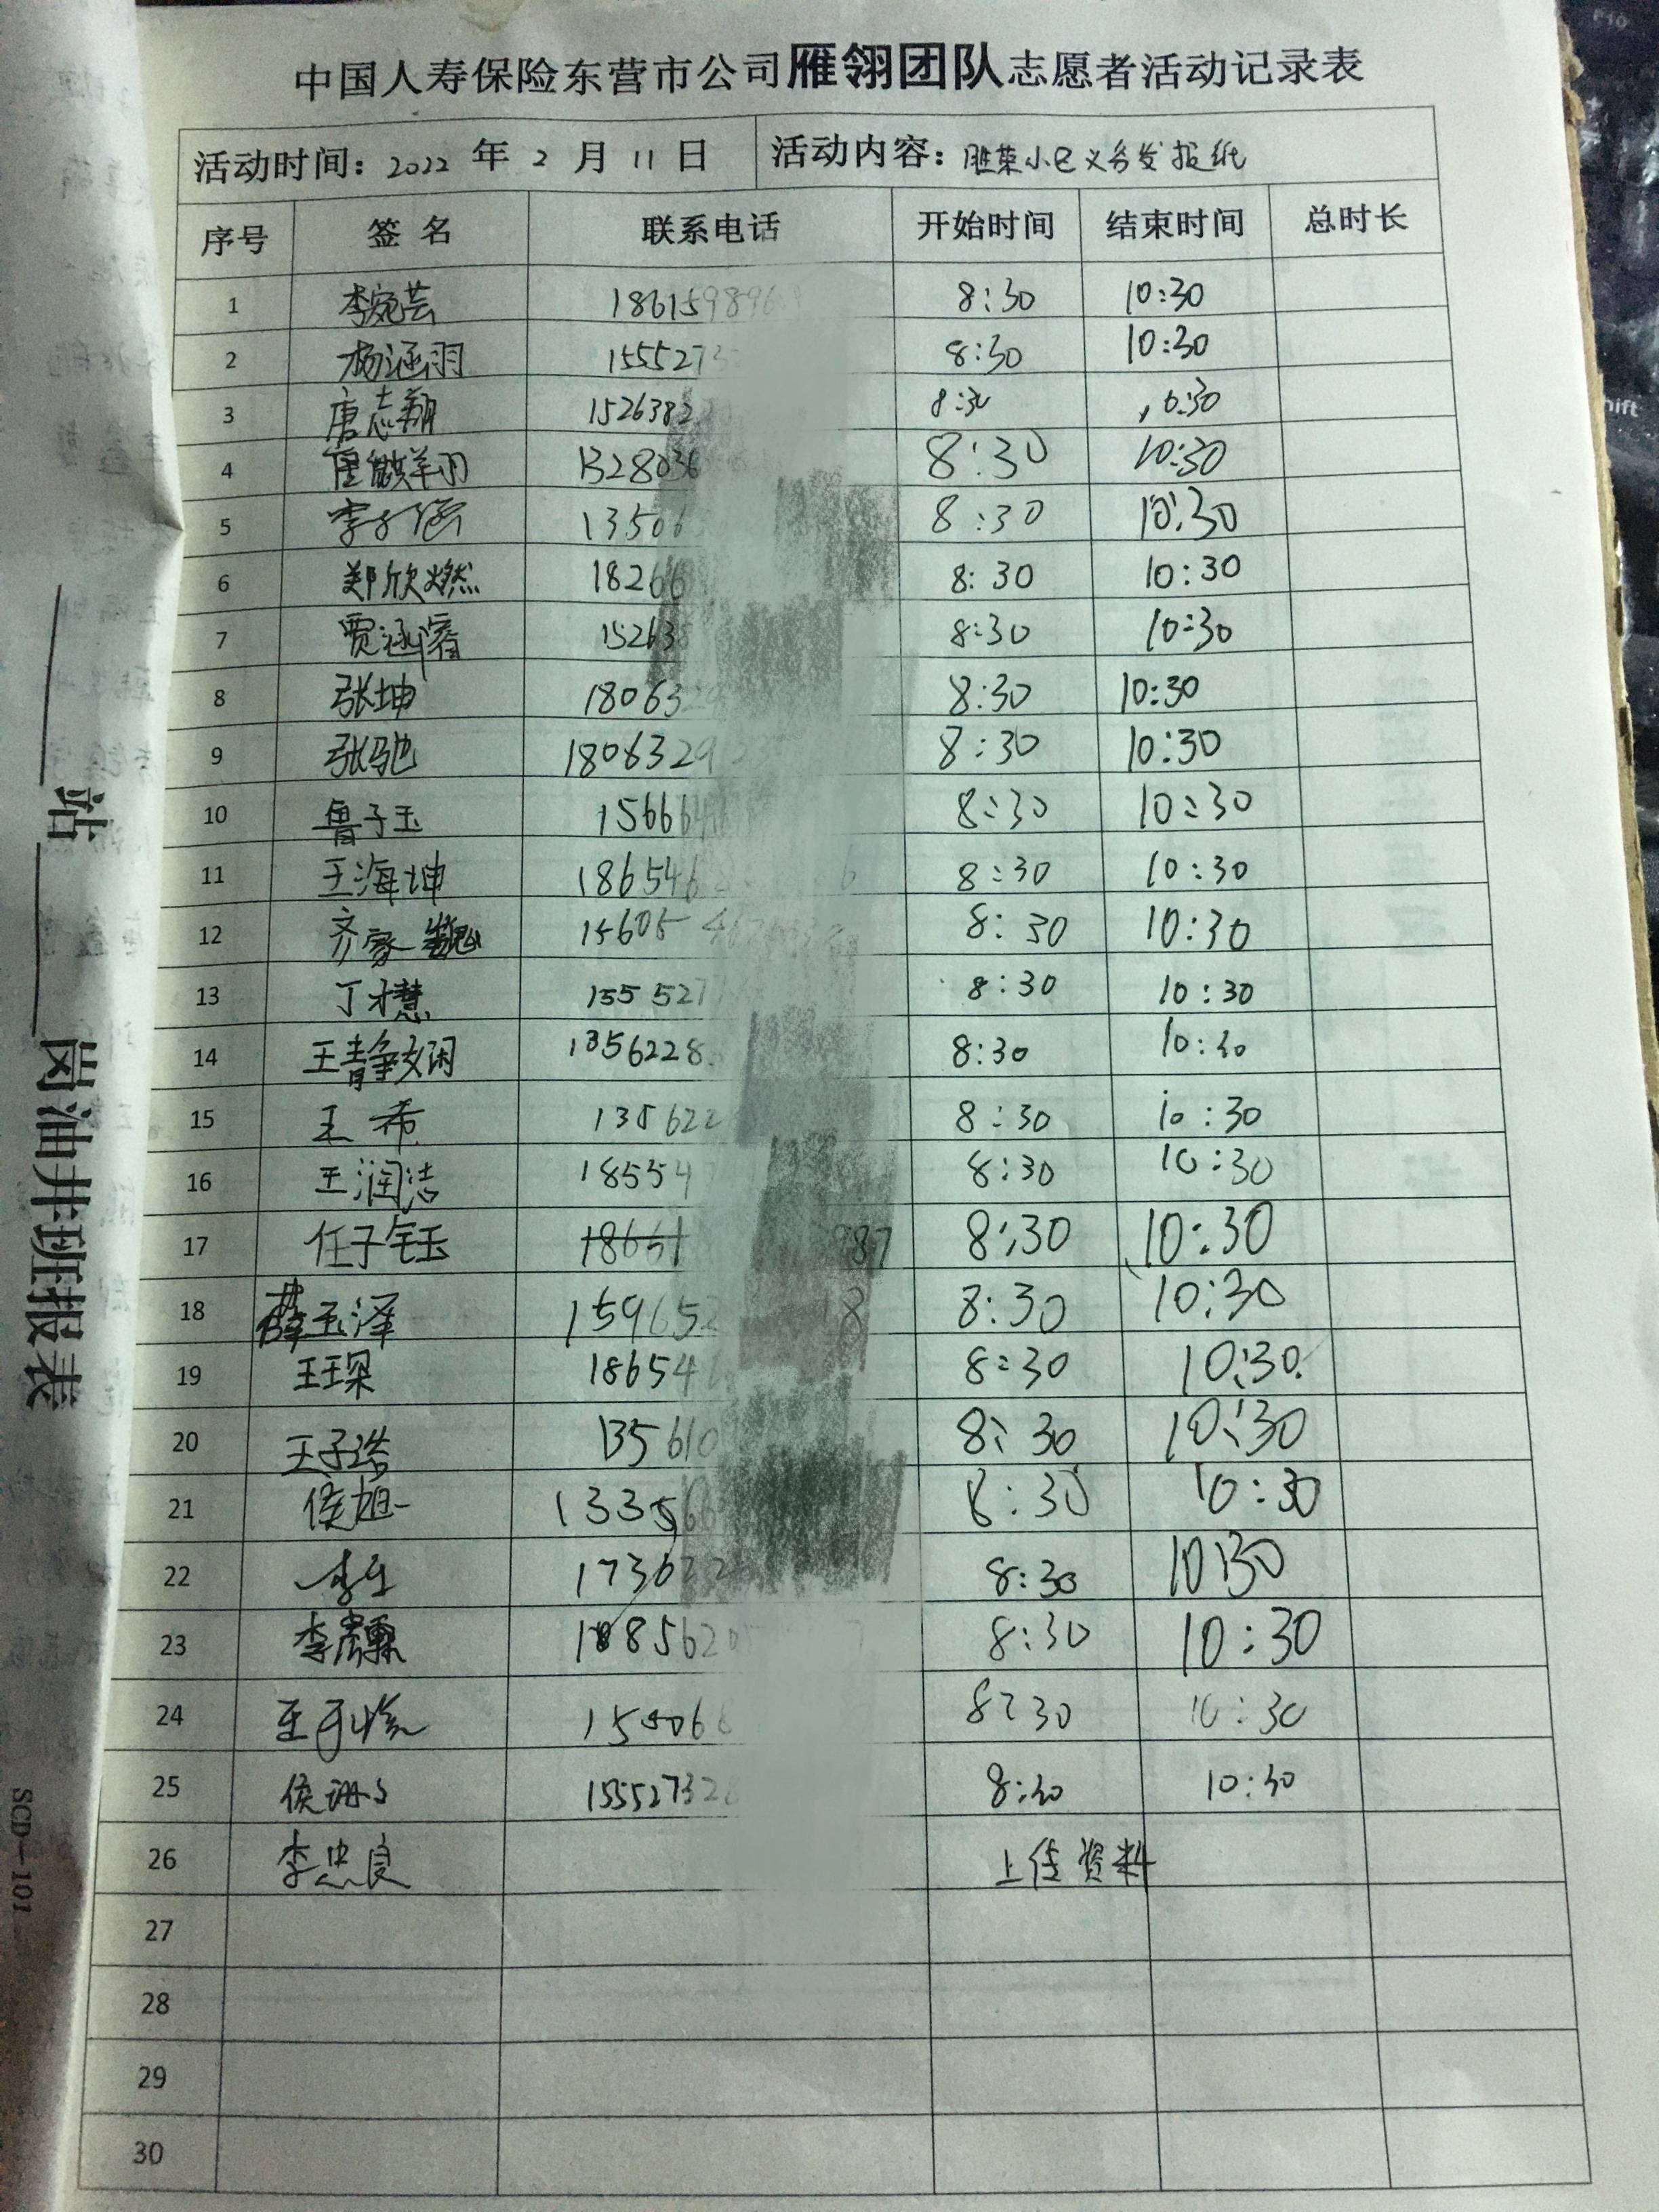 中国人寿保险东营市公司雁翎团队志愿者活动记录表
活动时间：2022 年 2 月 11 日 活动内容：胜莱小区义务发报纸
序号 签 名 联系电话 开始时间 结束时间 总时长
1 李宛芸 186159896 8:30 10:30
2 杨涵羽 155527 8:30 10:30
3 唐志翔 1526382 8:30 10:30
4 1328036 8:30 10:30
5 李子涵 13506 8:30 10:30
6 郑欣燃 18266 8:30 10:30
7 贾涵睿 15263 8:30 10:30
8 张坤 18063 8:30 10:30
9 张驰 1806329 8:30 10:30
10 鲁子玉 15666 8:30 10:30
11 王海坤 186546 8:30 10:30
12 齐家 15605 8:30 10:30
13 丁才慧 155527 8:30 10:30
14 王静娴 1356228 8:30 10:30
15 王希 135622 8:30 10:30
16 王润洁 18554 8:30 10:30
17 任子钰 18661 987 8:30 10:30
18 薛玉泽 159652 8 8:30 10:30
19 王琛 18654 8:30 10:30
20 王子浩 135610 8:30 10:30
21 侯旭一 1335 8:30 10:30
22 17362 8:30 10:30
23 李 185620 8:30 10:30
24 王 155066 8:30 10:30
25 侯珊珊 15552732 8:30 10:30
26 李忠良 上传资料
27
28
29
30
站
岗油井班报表
SCD—101